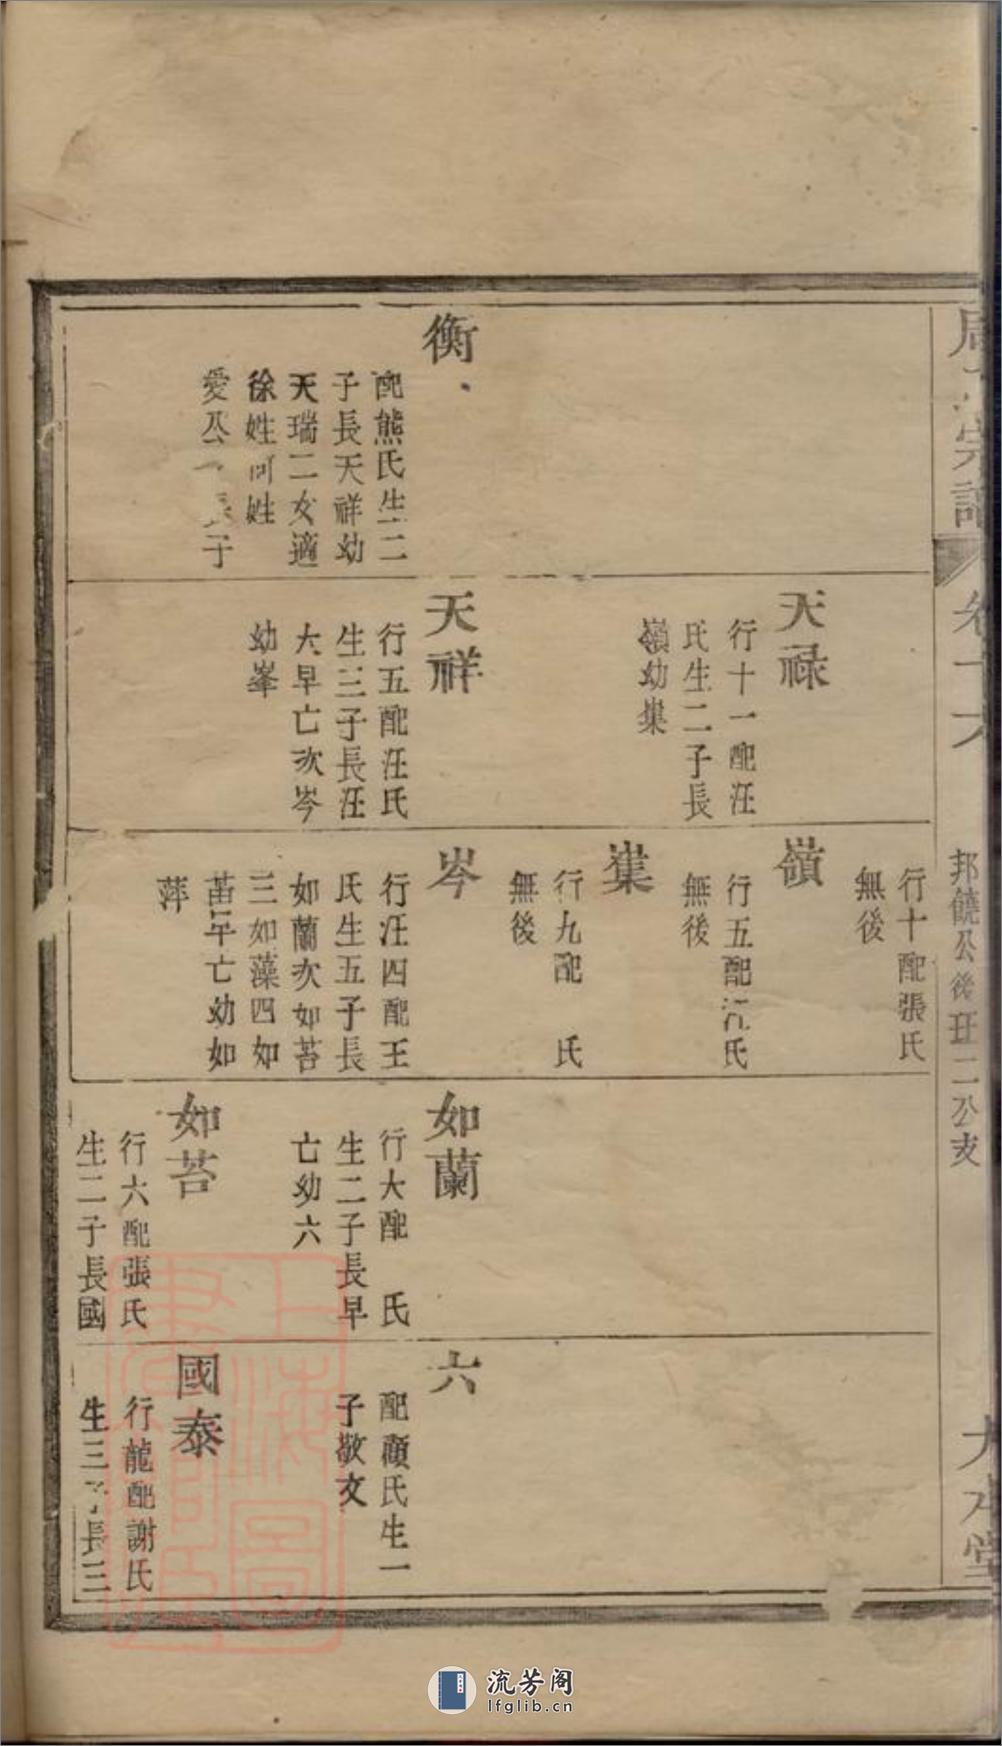 周氏宗譜
卷十六
邦饒公後班二公支
大本堂
衡
配熊氏生二
子長天祥幼
天瑞二女適
徐姓何姓
愛公長子
天禄
行十一配汪
氏生二子長
嶺幼集
天祥
行五配汪氏
生三子長汪
大早亡次岑
幼峯
行十配張氏
無後
嶺
行五配江氏
無後
集
行九配 氏
無後
岑
行汪四配王
氏生五子長
如蘭次如苔
三如藻四如
苗早亡幼如
萍
如蘭
行大配 氏
生二子長早
亡幼六
如苔
行六配張氏
生二子長國
六
配顏氏生一
子敬文
國泰
行龍配謝氏
生三子長三
上海圖書館藏
流芳阁
lfglib.cn